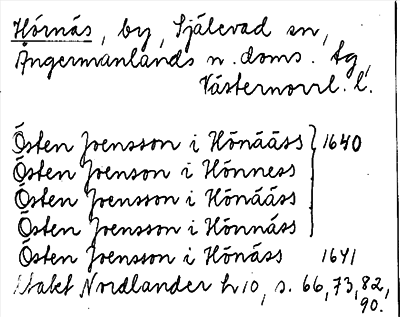 Hörnäs, by, Själevad sn,
Ångermanlands n. doms. tg,
Västernorrl. l.
Östen Joensson i Hönääss } 1640
Östen Joenson i Hönness
Östen Joenson i Hönääss
Östen Joenson i Hönnäss
Östen Joensson i Hönäss 1641
Utakt Nordlander h 10, s. 66, 73, 82,
90.